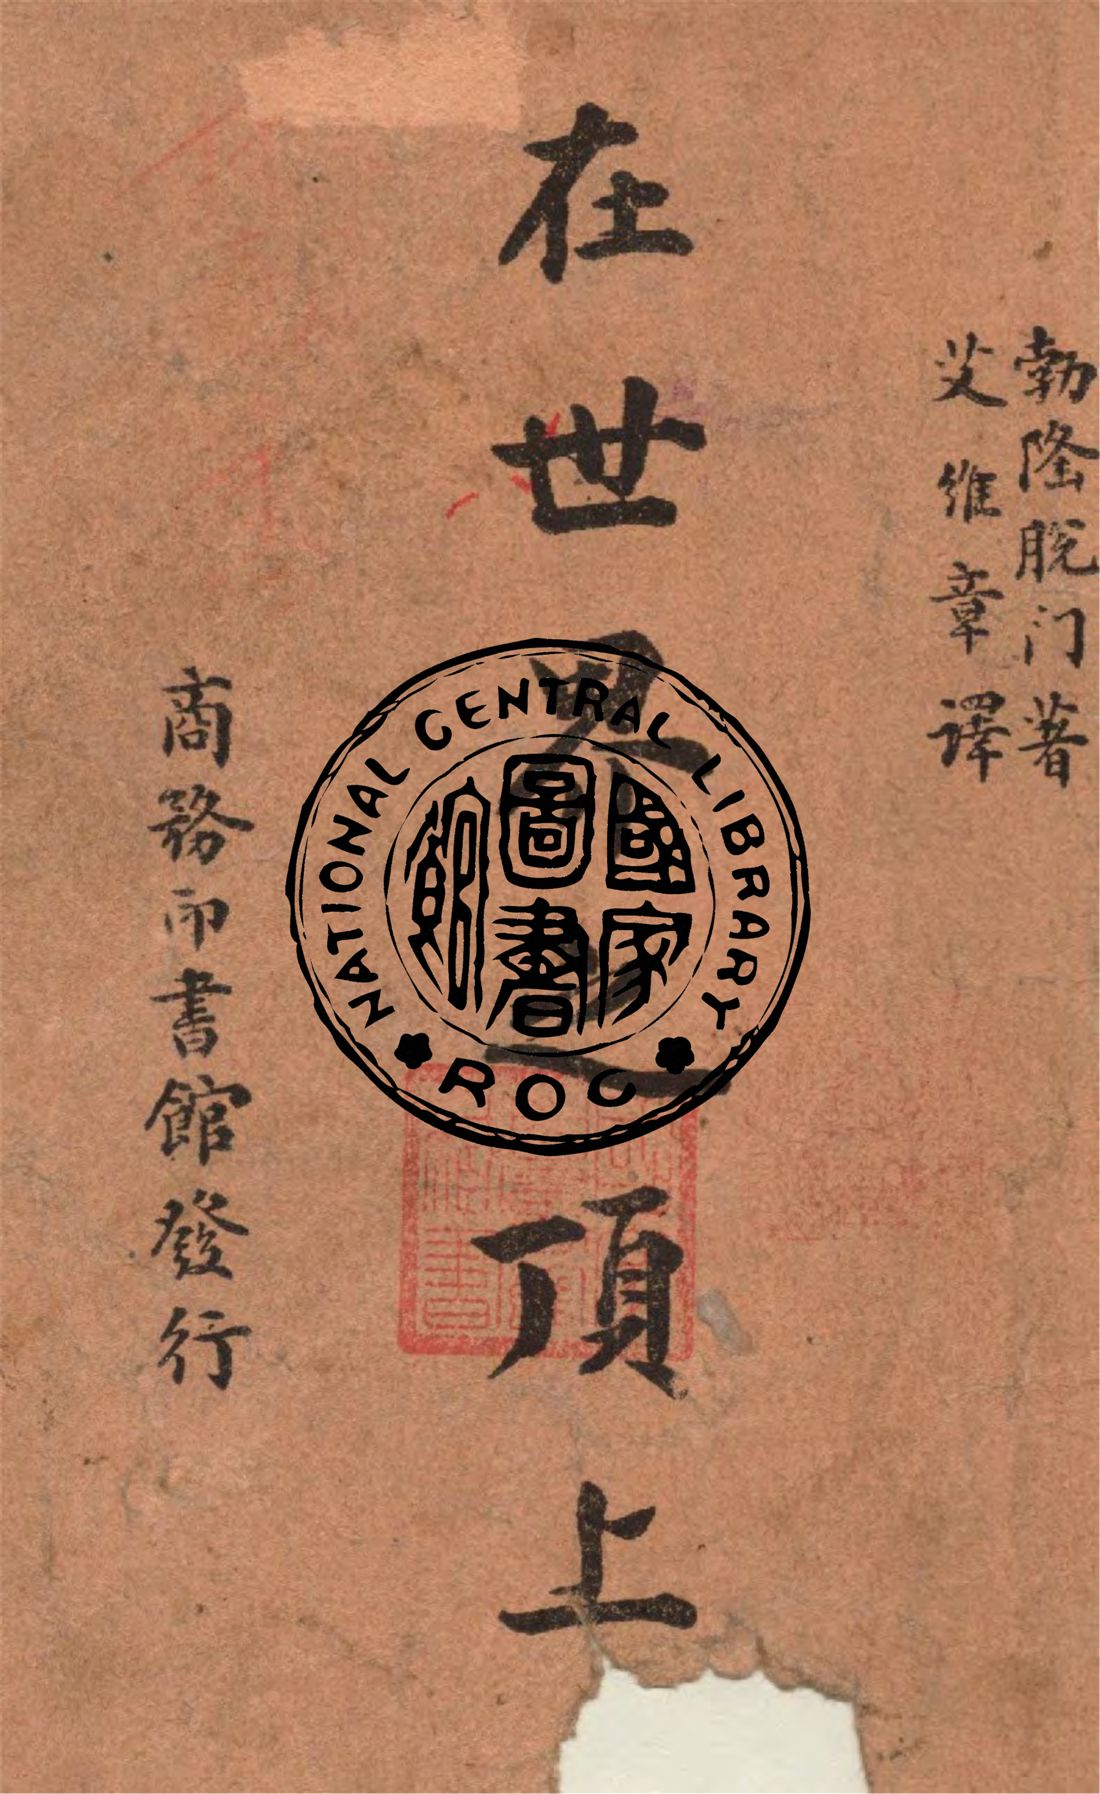 勃隆脫门著
艾維章譯
在世界之頂上
商務印書館發行
NATIONAL CENTRAL LIBRARY
ROC
國家圖書館